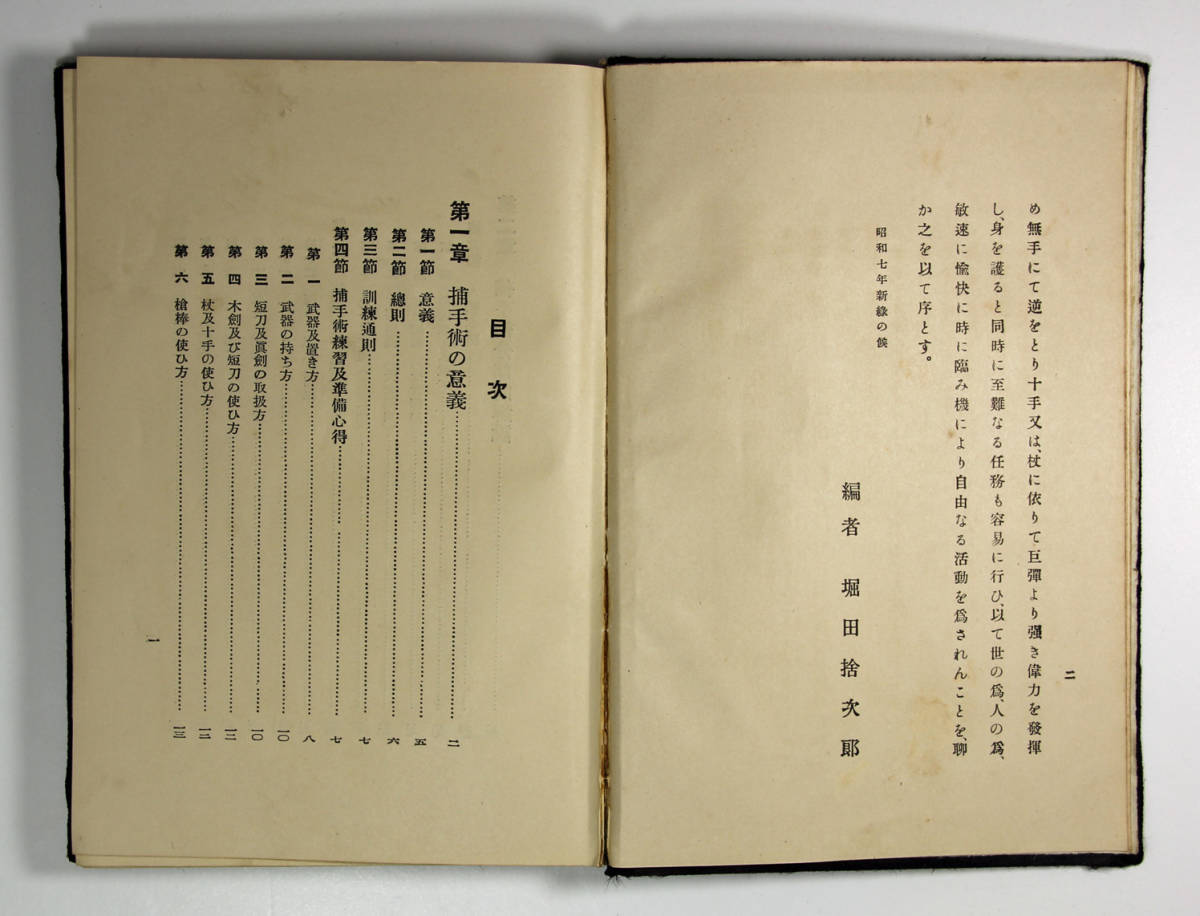 二
め無手にて逆をとり十手又は、杖に依りて巨彈より强き偉力を發揮
し、身を護ると同時に至難なる任務も容易に行ひ、以て世の爲、人の爲、
敏速に愉快に時に臨み機により自由なる活動を爲されんことを、聊
か之を以て序とす。
昭和七年新綠の候
編者 堀田捨次郎
目次
第一章 捕手術の意義……………二
第一節 意義……………五
第二節 總則……………六
第三節 訓練通則……………七
第四節 捕手術練習及準備心得……………七
第一 武器及置き方……………八
第二 武器の持ち方……………一〇
第三 短刀及眞劍の取扱方……………一〇
第四 木劍及び短刀の使ひ方……………一二
第五 杖及十手の使ひ方……………一二
第六 槍棒の使ひ方……………一三
一